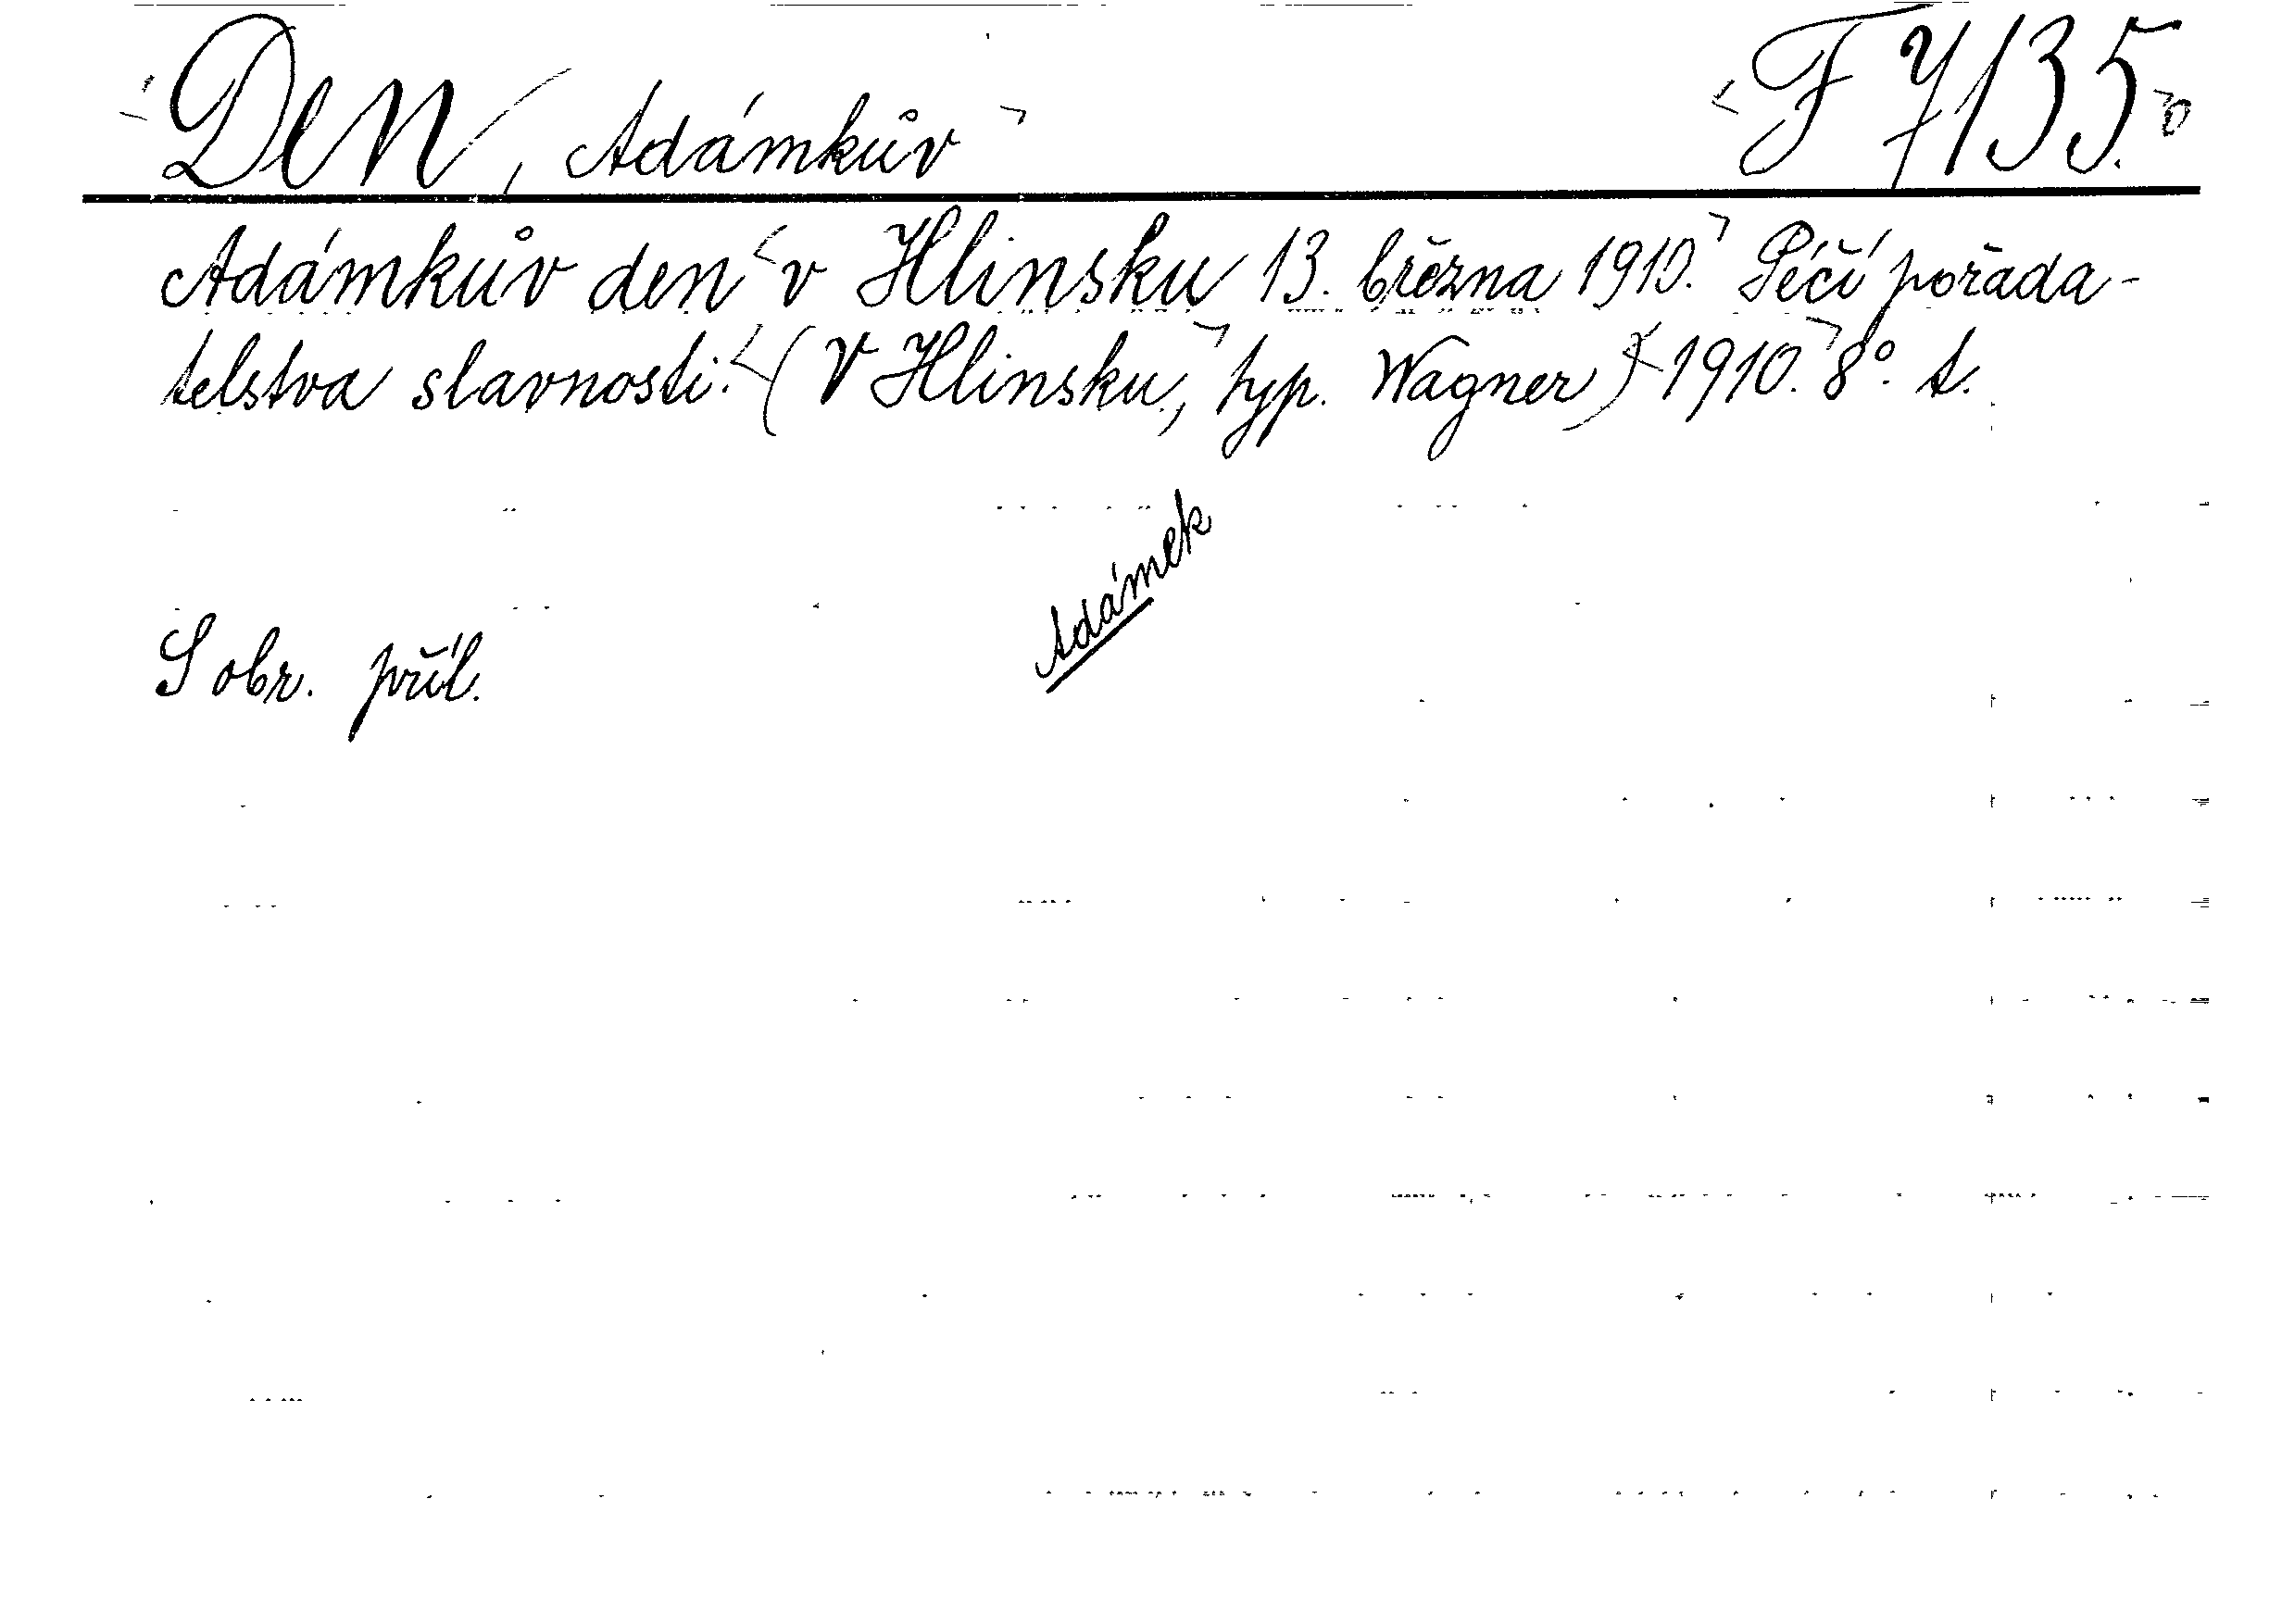 Den, Adámkův
F 7135.
Adámkův den v Hlinsku 13. března 1910. Péčí pořada-
telstva slavnosti. (V Hlinsku, typ. Wagner) 1910. 8°. t.
Adámek
S obr. příl.